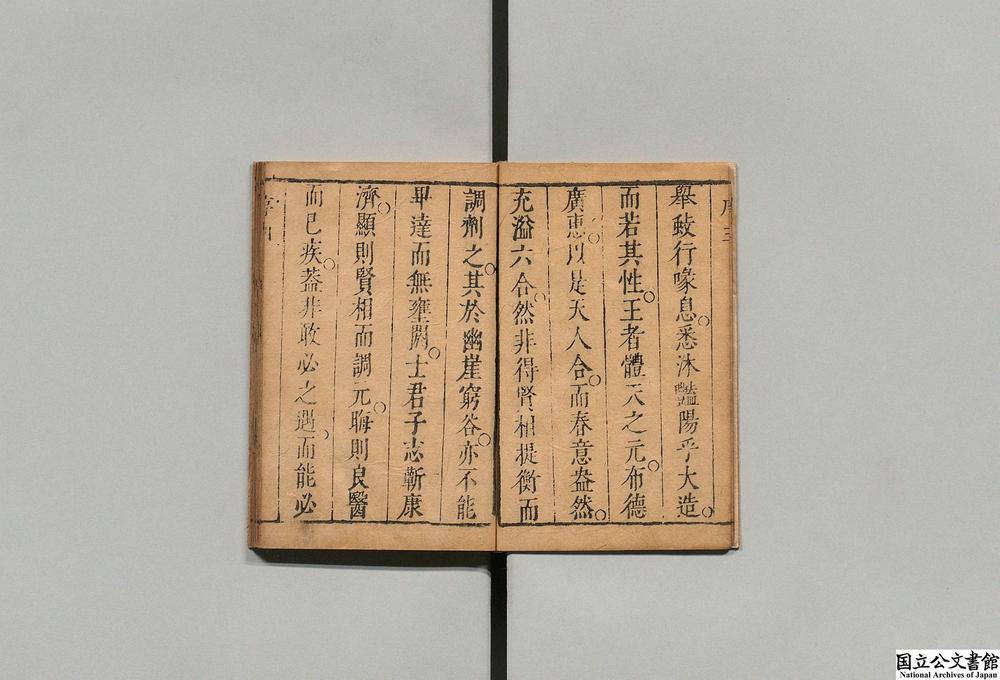 序三
舉蚑行喙息悉沐豔陽乎大造
而若其性王者體天之元布德
廣惠以是天人合而春意盎然
充溢六合然非得賢相提衡而
調劑之其於幽崖窮谷亦不能
畢達而無壅閼士君子志蘄康
濟顯則賢相而調元晦則良醫
而已疾葢非敢必之遇而能必
国立公文書館
National Archives of Japan